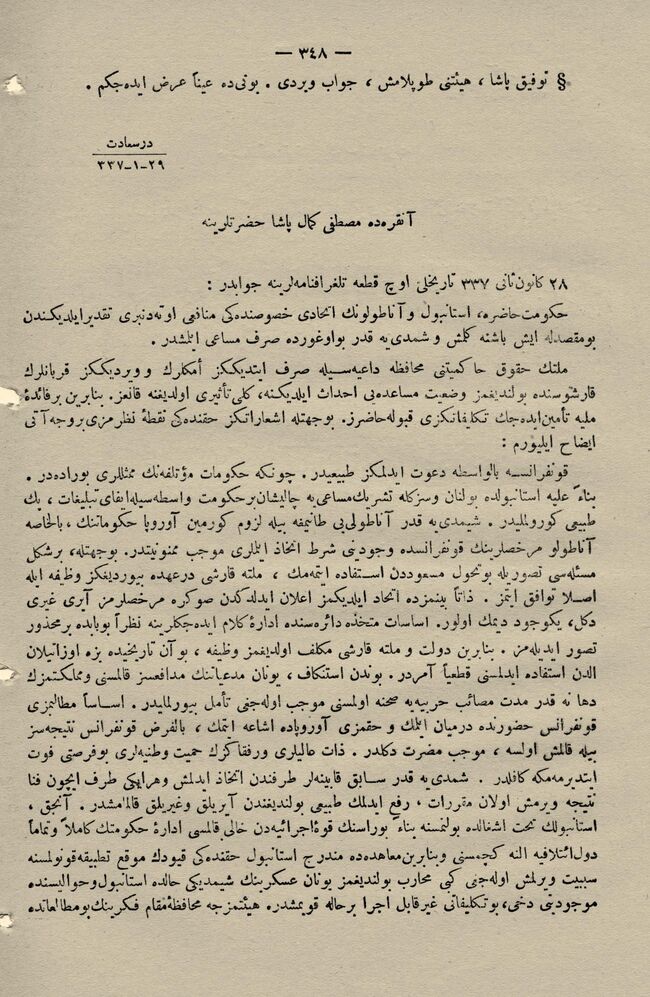 — ٣٤٨ —
§ توفيق پاشا ، هيئتنى طوپلامش ، جواب ويردى . بونى ده عيناً عرض ايده جكم .
درسعادت
٢٩-١-٣٣٧
آنقره ده مصطفى كمال پاشا حضرتلرينه
٢٨ كانون ثانى ٣٣٧ تاريخلى اوچ قطعه تلغرافنامه لرينه جوابدر :
حكومت حاضره، استانبول و آناطولونك اتحادى خصوصنده كى منافعى اوته دنبرى تقدير ايلديكندن
بومقصدله ايش باشنه كلمش و شمدى يه قدر بو اوغورده صرف مساعى ايتمشدر .
ملتك حقوق حاكميتنى محافظه داعيه سيله صرف ايتديككز أمكلرك و ويرديككز قربانلرك
قارشوسنده بولنديغمز وضعيت مساعده يى احداث ايلديكنه، كلى تأثيرى اولديغنه قانعز. بنابرين برفائدهٔ
مليه تأمين ايده جك تكليفاتكزى قبوله حاضرز. بوجهتله اشعاراتكز حقنده كى نقطهٔ نظرمزى بروجه آتى
ايضاح ايليورم :
قونفرانسه بالواسطه دعوت ايدلمكز طبيعيدر . چونكه حكومات مؤتلفه نك ممثللرى بوراده در .
بناءً عليه استانبولده بولنان وسزكله تشريك مساعى يه چاليشان برحكومت واسطه سيله ايفاى تبليغات ، پك
طبيعى كورولمليدر . شيمدى يه قدر آناطولى يى طانيمغه بيله لزوم كورمين آوروپا حكوماتنك ، بالخاصه
آناطولو مرخصلرينك قونفرانسده وجودينى شرط اتخاذ ايتملرى موجب ممنونيتدر. بوجهتله، برشكل
مسئله سى تصوريله بوتحول مسعوددن استفاده ايتمه مك ، ملته قارشى درعهده بيورديغكز وظيفه ايله
اصلا توافق ايتمز . ذاتاً بينمزده اتحاد ايلديكمز اعلان ايدلدكدن صوكره مرخصلرمز آيرى غيرى
دكل، يكوجود ديمك اولور. اساسات متخذه دائره سنده ادارهٔ كلام ايده جكلرينه نظراً بوبابده برمحذور
تصور ايديله مز . بنابرين دولت و ملته قارشى مكلف اولديغمز وظيفه ، بو آن تاريخيده بزه اوزاتيلان
الدن استفاده ايدلمسنى قطعياً آمردر. بوندن استنكاف ، يونان مدعياتنك مدافعسز قالمسنى ومملكتمزك
دها نه قدر مدت مصائب حربيه يه صحنه اولمسنى موجب اوله جغنى تأمل بيورلمليدر. اساساً مطالبمزى
قونفرانس حضورنده درميان ايتمك و حقمزى آوروپاده اشاعه ايتمك ، بالفرض قونفرانس نتيجه سز
بيله قالمش اولسه ، موجب مضرت دكلدر . ذات عاليلرى ورفقاكزك حميت وطنيه لرى بوفرصتى فوت
ايتديرمه مكه كافلدر . شمدى يه قدر سابق قابينه لر طرفندن اتخاذ ايدلمش وهرايكى طرف ايچون فنا
نتيجه ويرمش اولان مقررات ، رفع ايدلمك طبيعى بولنديغندن آيريلق وغيريلق قالمامشدر . آنجق ،
استانبولك تحت اشغالده بولنمسنه بناءً بوراسنك قوهٔ اجرائيه دن خالى قالمسى ادارهٔ حكومتك كاملاً وتماماً
دول ائتلافيه النه كچمسنى وبنابرين معاهده ده مندرج استانبول حقنده كى قيودك موقع تطبيقه قونولمسنه
سببيت ويرلمش اوله جغى كبى محارب بولنديغمز يونان عسكرينك شيمديكى حالده استانبول وحواليسنده
موجوديتى دخى، بوتكليفاتى غيرقابل اجرا برحاله قويمشدر. هيئتمزجه محافظهٔ مقام فكرينك بومطالعاتده